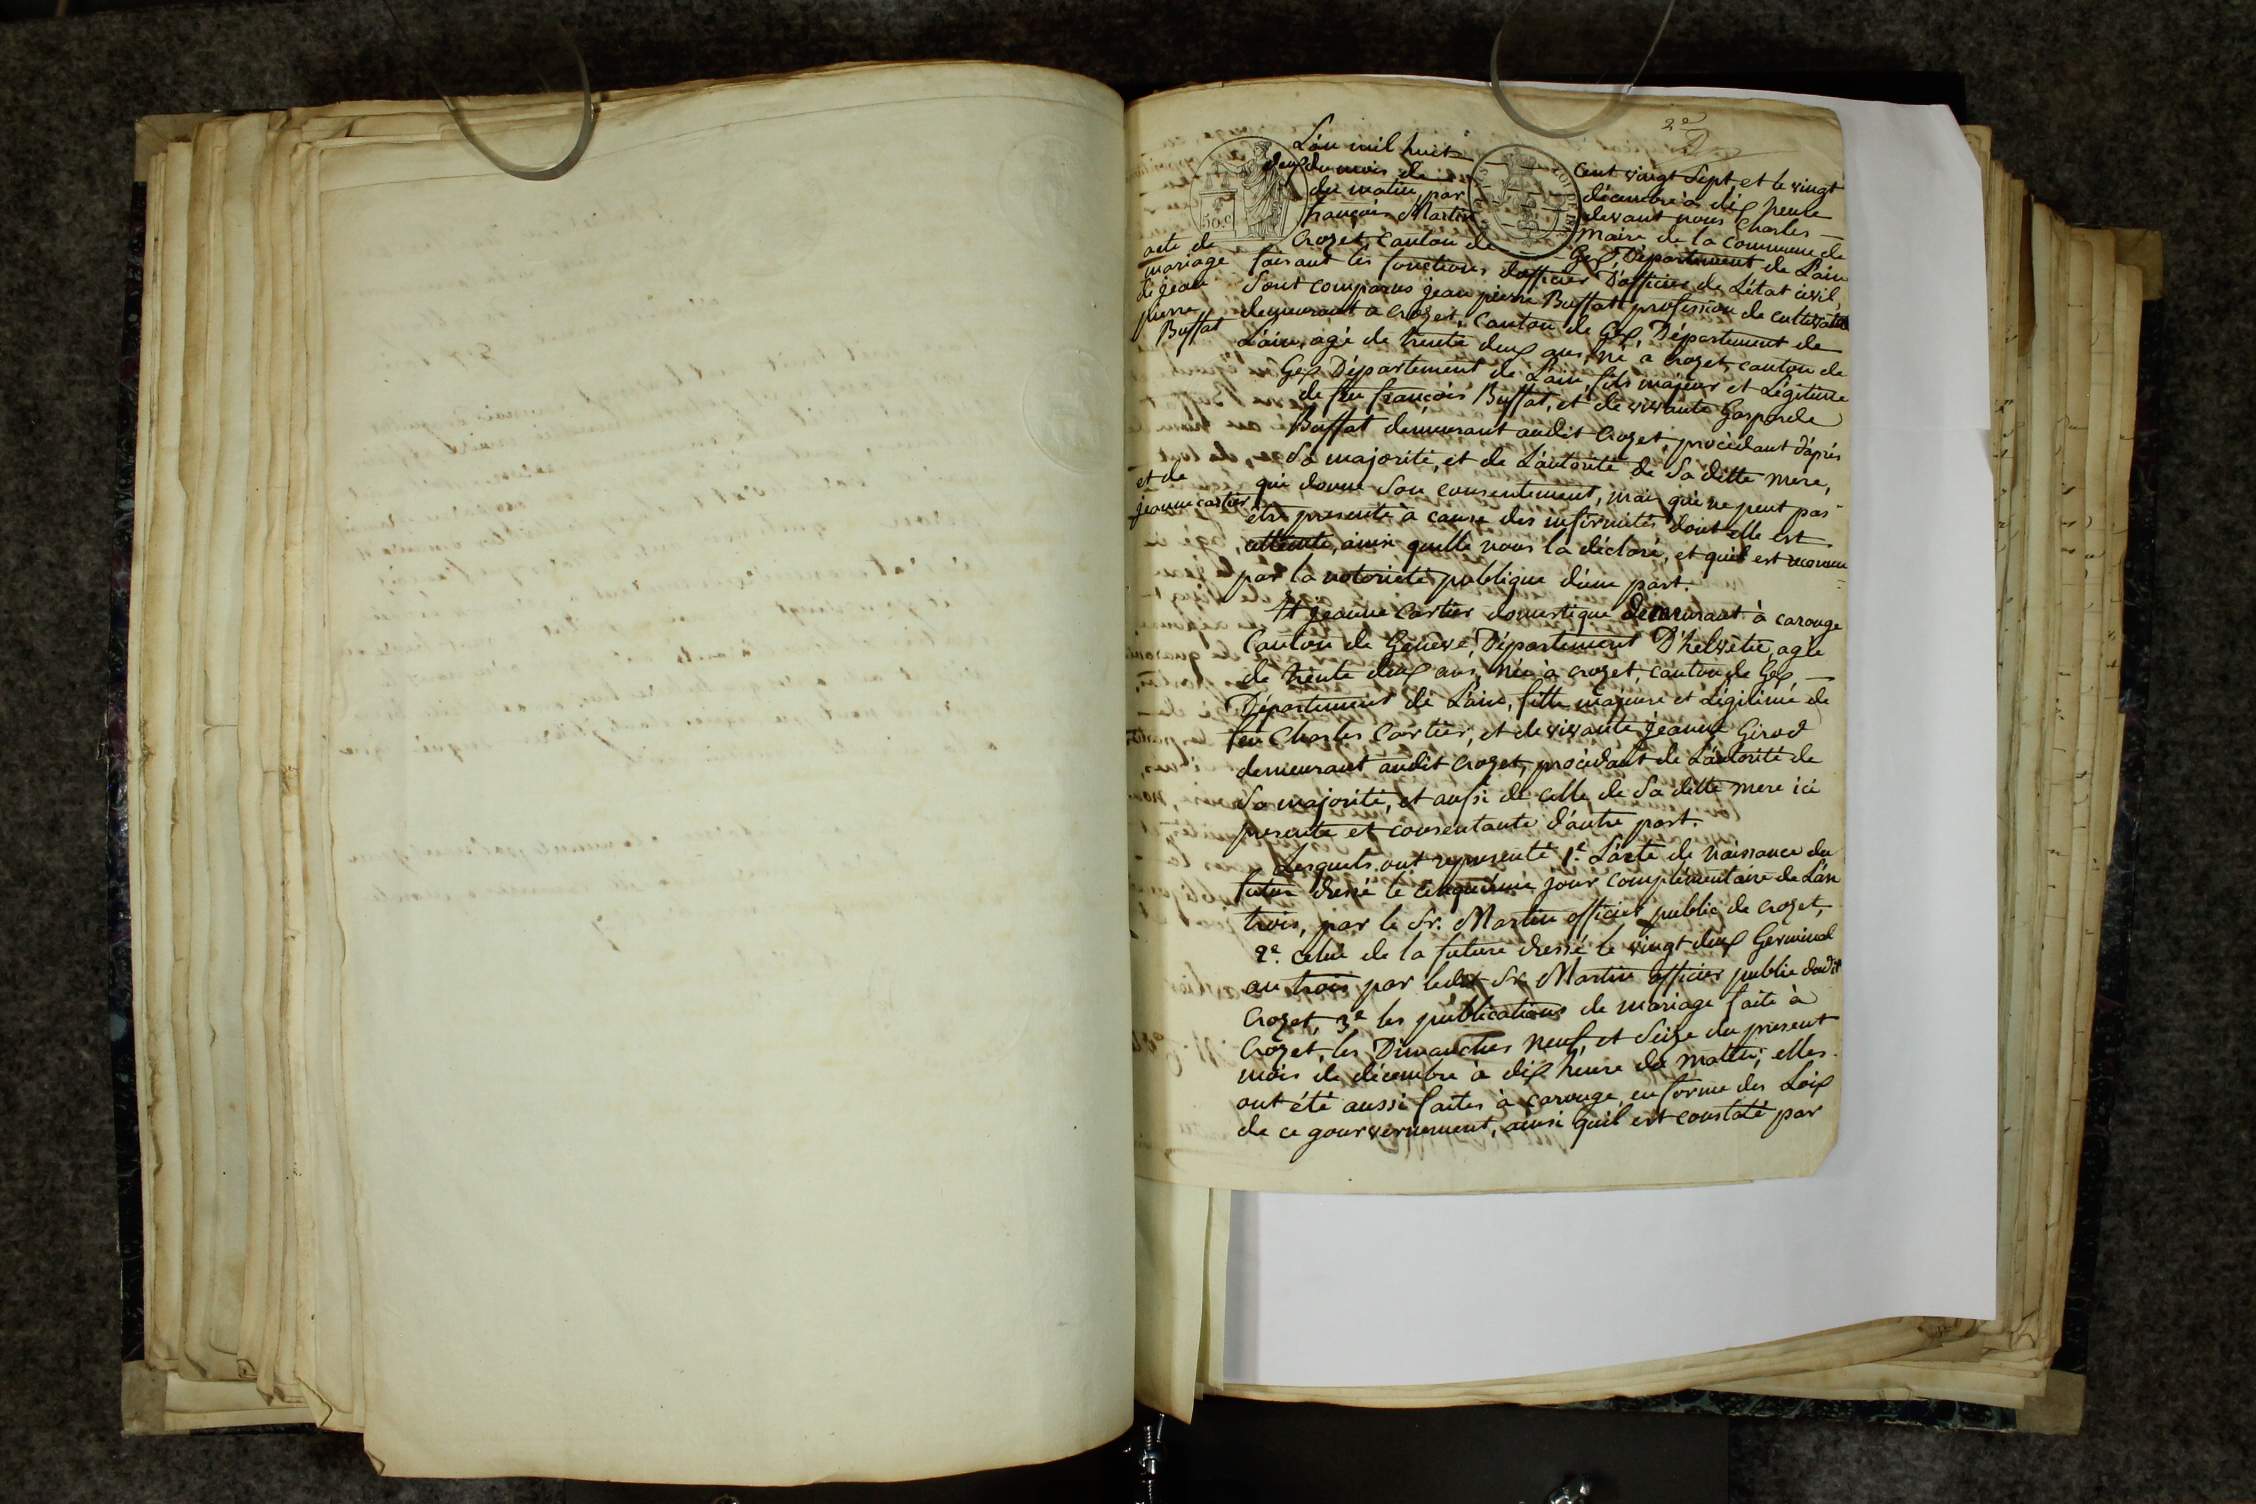 2e
L'an mil huit cent vingt Sept, et le vingt
deux du mois de décembre à dix heure
du matin, par devant nous Charles
françois Martin maire de la commune de
Crozet, canton de Gex, Département de L'ain
faisant les fonctions d'officier D'officier de L'état civil,
Sont comparus jean pierre Buffat profession de cultivateur
demeurant à crozet, canton de Gex, Département de
L'ain, agé de trente deux ans, né a crozet, canton de
Gex Département de L'ain, fils majeur et Légitime
de feu françois Buffat, et de vivante Gasparde
Buffat demeurant audit crozet, procédant d'après
Sa majorité, et de L'autorité de Sa ditte mere,
qui donne Son consentement, mais qui ne peut pas
être presente à cause des infirmités dont elle est
atteinte, ainsi quelle nous la déclaré, et quil est reconnu
par la notorieté publique d'une part.
Et jeanne cartier domestique demeurant à carouge
Canton de Genève, Département D'helvétie, agée
de trente deux ans, née à crozet, canton de Gex,
Département de L'ain, fille majeure et Légitime de
feu Charles Cartier, et de vivante jeanne Girod
demeurant audit crozet, procédant de L'autorité de
Sa majorité, et aussi de celle de Sa ditte mere ici
presente et consentante d'autre part.
Lesquels ont representé 1e. L'acte de naissance du
futur dressé le cinquième jour complémentaire de L'an
trois, par le Sr. Martin officier public de crozet,
2e. celui de la future dressé le vingt deux Germinal
an trois par ledit Sr. Martin officier public dudit
Crozet, 3e les publications de mariage faite à
Crozet, les Dimanches neuf, et Seize du present
mois de décembre à dix heure du matin; elles
ont été aussi faites à carouge, en forme des Loix
de ce gourvernement, ainsi quil est constaté par
acte de
mariage
de jean
pierre
Buffat
et de
jeanne cartier
50.c